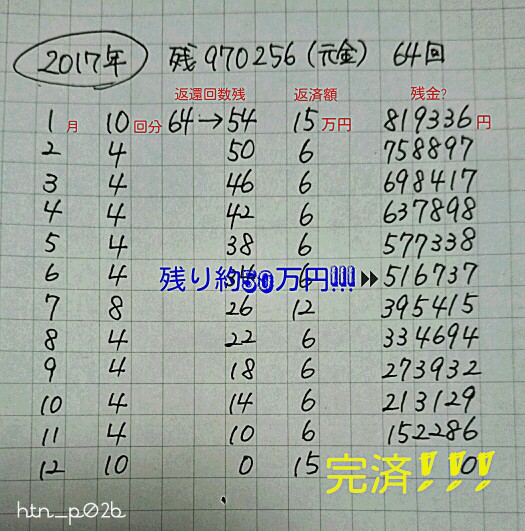 2017年 残970256(元金) 64回
返還回数残 返済額 残金?
1月 10回分 64→54 15万円 819336円
2 4 50 6 758897
3 4 46 6 698417
4 4 42 6 637898
5 4 38 6 577338
6 4 34 6 516737
残り約50万円!!!
7 8 26 12 395415
8 4 22 6 334694
9 4 18 6 273932
10 4 14 6 213129
11 4 10 6 152286
12 10 0 15 0
完済!!!
htn_p02b